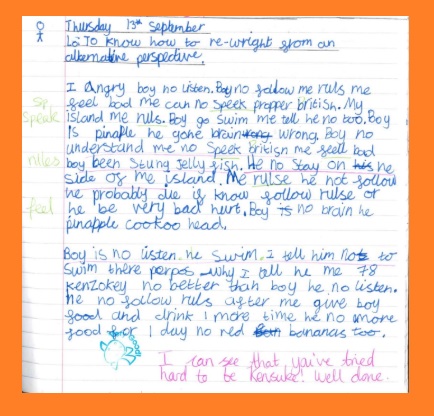 Thursday 13th September
Lo To know how to re-wright from an
alternative perspective.
I Angry boy no listen. Boy no follow me ruls me
feel bad me can no speek propper british. My
sp
speak
island me ruls. Boy go swim me tell he no too. Boy
is pinaple he gone brain wrong. Boy no
understand me no speek british me feell bad
rules
boy been stung Jelly fish. He no stay on he
side of me island. Me rulse he not follow
he probably die if know follow rulse or
feel
he be very bad hurt. Boy is no brain he
pinapple cookoo head.
Boy is no listen. he swim. I tell him not to
swim there perpos why I tell he me 78
kenzokey no better than boy he no listen.
he no follow ruls after me give boy
food and drink 1 more time he no more
food for 1 day no red bananas too.
I can see that you've tried
hard to be Kensuke! Well done.